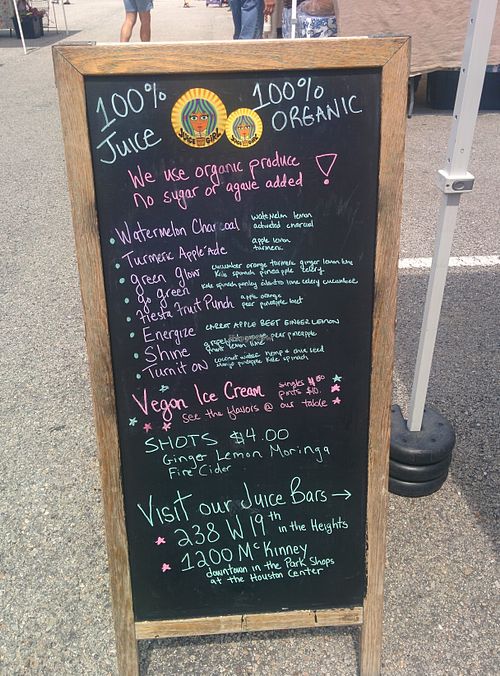 100% Juice
JUICE GIRL
JUICE GIRL
100% ORGANIC
We use organic produce
No sugar or agave added!
Watermelon Charcoal watermelon lemon
activated charcoal
Turmeric Apple'Ade apple lemon
turmeric
green glow cucumber orange turmeric ginger lemon lime
Kale spinach pineapple celery
go green Kale spinach parsley cilantro lime celery cucumber
Fiesta Fruit Punch apple orange
pear pineapple beet
Energize CARROT APPLE BEET GINGER LEMON
Shine pear pineapple
lemon lime
Turnit ON coconut water hemp + chia seed
mango pineapple Kale spinach
Vegan Ice Cream singles
pints $10.
see the flavors @ our table
SHOTS $4.00
Ginger Lemon Moringa
Fire Cider
Visit our Juice Bars →
238 W 19th in the Heights
1200 McKinney
downtown in the Park Shops
at the Houston Center